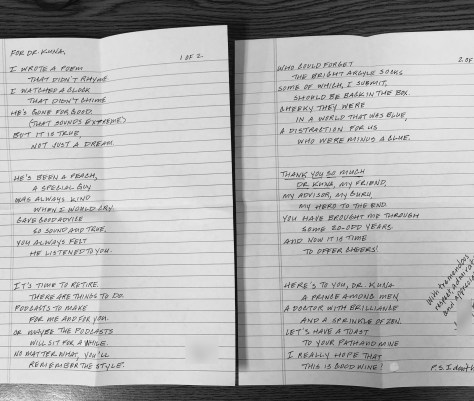 FOR DR. KUNA,
1 OF 2
I WROTE A POEM
THAT DIDN'T RHYME
I WATCHED A CLOCK
THAT DIDN'T CHIME
HE'S GONE FOR GOOD.
(THAT SOUNDS EXTREME)
BUT IT IS TRUE,
NOT JUST A DREAM
HE'S BEEN A PEACH,
A SPECIAL GUY
WAS ALWAYS KIND
WHEN I WOULD CRY.
GAVE GOOD ADVICE
SO SOUND AND TRUE,
YOU ALWAYS FELT
HE LISTENED TO YOU.
IT'S TIME TO RETIRE
THERE ARE THINGS TO DO.
PODCASTS TO MAKE
FOR ME AND FOR YOU.
OR MAYBE THE PODCASTS
WILL SIT FOR A WHILE.
NO MATTER WHAT, YOU'LL
REMEMBER THE STYLE.
2 OF
WHO COULD FORGET
THE BRIGHT ARGYLE SOCKS
SOME OF WHICH, I SUBMIT,
SHOULD BE BACK IN THE BOX.
CHEEKY THEY WERE
IN A WORLD THAT WAS BLUE,
A DISTRACTION FOR US
WHO WERE MINUS A CLUE.
THANK YOU SO MUCH
DR. KUNA, MY FRIEND,
MY ADVISOR, MY GURU,
MY HERO TO THE END
YOU HAVE BROUGHT ME THROUGH
SOME 20-ODD YEARS
AND NOW IT IS TIME
TO OFFER CHEERS!
HERE'S TO YOU, DR. KUNA
A PRINCE AMONG MEN,
A DOCTOR WITH BRILLIANCE
AND A SPRINKLE OF ZEN.
LET'S HAVE A TOAST
TO YOUR PATH AND MINE
I REALLY HOPE THAT
THIS IS GOOD WINE!
With tremendous
respect, admira
and apprec
P.S. I